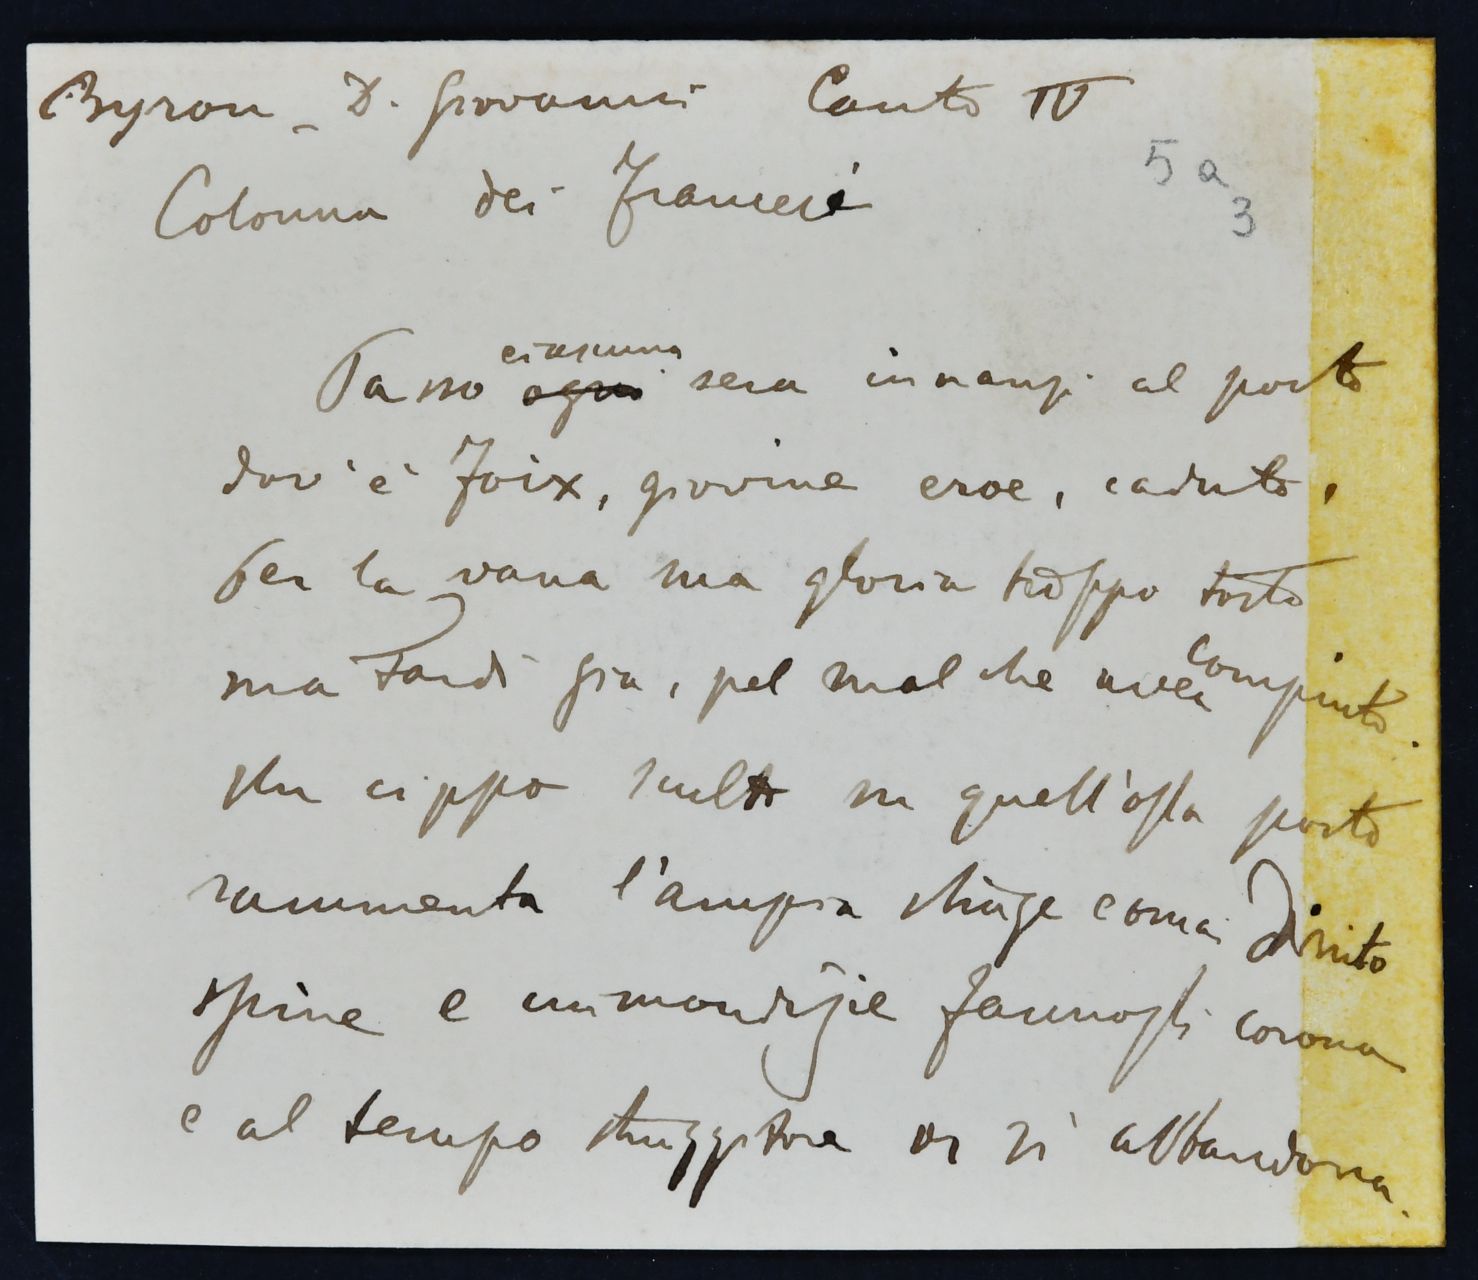 Byron – D. Giovanni Canto IV
5 a
3
Colonna dei Francesi
ciascuna
Passo ogni sera innanzi al posto
dov'è Foix, giovine eroe, caduto,
Per la vana sua gloria troppo tosto
ma tardi già, pel mal che avea compiuto.
Un cippo sculto su quell'osta posto
rammenta l'ampia strage e omai
spine e immondizie fannogli corona
e al tempo struggitore or si abbandona.